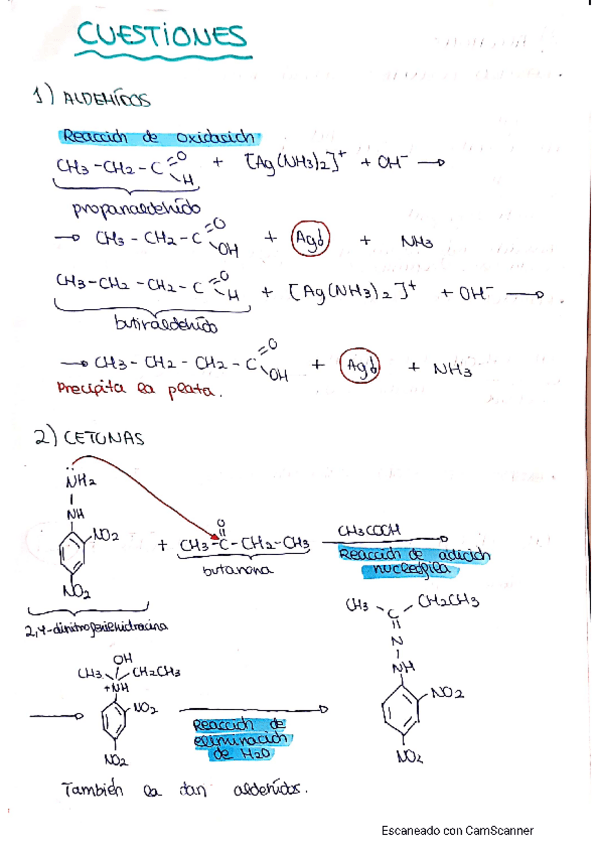 CUESTIONES
1) ALDEHÍDOS
Reacción de oxidación
CH3-CH2-C=O H + [Ag(NH3)2]+ + OH- →
propanaldehído
→ CH3-CH2-C=O OH + Ag↓ + NH3
CH3-CH2-CH2-C=O H + [Ag(NH3)2]+ + OH- →
butiraldehído
→ CH3-CH2-CH2-C=O OH + Ag↓ + NH3
Precipita la plata.
2) CETONAS
NH2
NH
NO2
NO2
2,4-dinitrofenilhidracina
+ CH3-C-CH2-CH3
O
butanona
CH3COOH
Reacción de adición
nucleófila
OH
CH3 CH2CH3
+NH
NO2
NO2
Reacción de
eliminación
de H2O
CH3 C CH2CH3
N
NH
NO2
NO2
También la dan aldehídos.
Escaneado con CamScanner